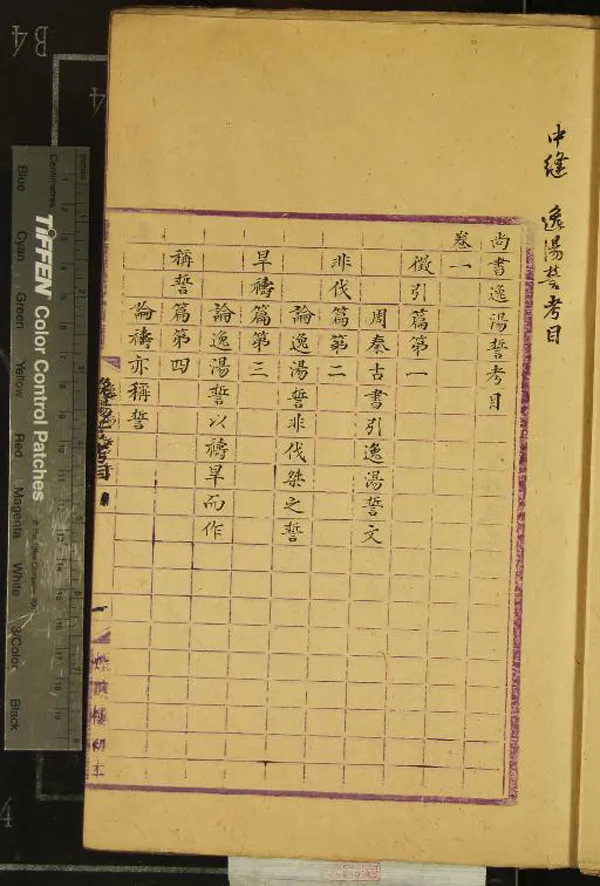 中縫 逸湯誓考目
尚書逸湯誓考目
卷一
徵引篇第一
周秦古書引逸湯誓文
非伐篇第二
論逸湯誓非伐桀之誓
旱禱篇第三
論逸湯誓以禱旱而作
稱誓篇第四
論禱亦稱誓
逸湯誓考目
一
樓初本
B4
4
4
Inches
Centimetres
TIFFEN Color Control Patches
Blue
Cyan
Green
Yellow
Red
Magenta
White
3/Color
Black